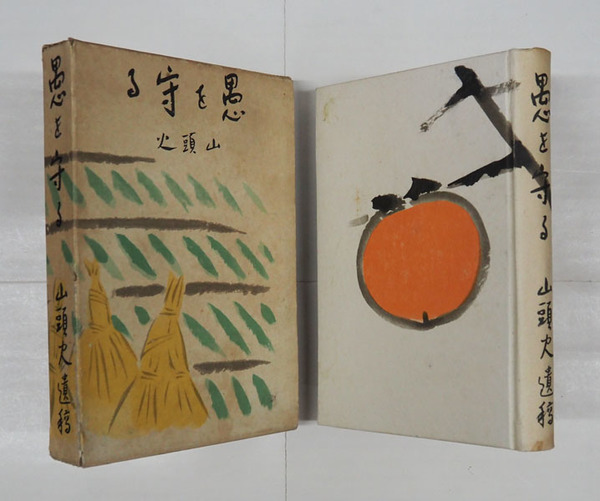 愚を守る
山頭火遺稿
愚を守る
山頭火
愚を守る
山頭火遺稿